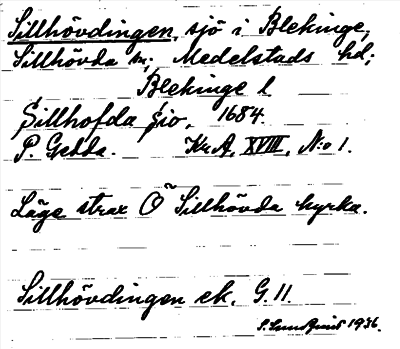 Sillhövdingen, sjö i Blekinge,
Sillhövda sn; Medelstads hd;
Blekinge l
Sillhofda Sio, 1684.
P. Gedda. Kr.A. XVIII, N:o 1.
Läge strax Ö Sillhövda kyrka.
Sillhövdingen ek. G. 11.
S. Sundquist 1936.